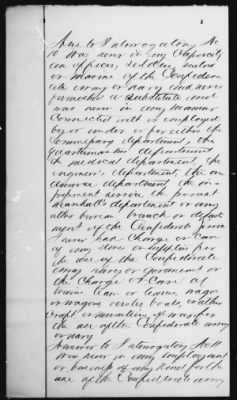 Ans to Interrogatory No
10 was never in any Capacity
an officer, soldier, sailor
or marine of the Confeder-
ate army or navy and never
furnished a substitute and
was never in any manner
Connected with or employed
by or under or for either the
Commissary department, the
Quartermaster department
the medical department, the
engineer's department, the or-
dinance department the im-
pressment service, the provost
Marshall's department or any
other bureau branch or depart-
ment of the Confederate
I never had Charge or Care
of any stores or supplies for
the use of the Confederate
army navy or government or
the Charge & Care of
team or teams, wagon
or wagons vessels boats, or other
Craft or munitions of war for
the use of the Confederate army
or navy
Answer to Interrogatory No 11
Was never in any employment
or business of any kind for the
use of the Confederate army